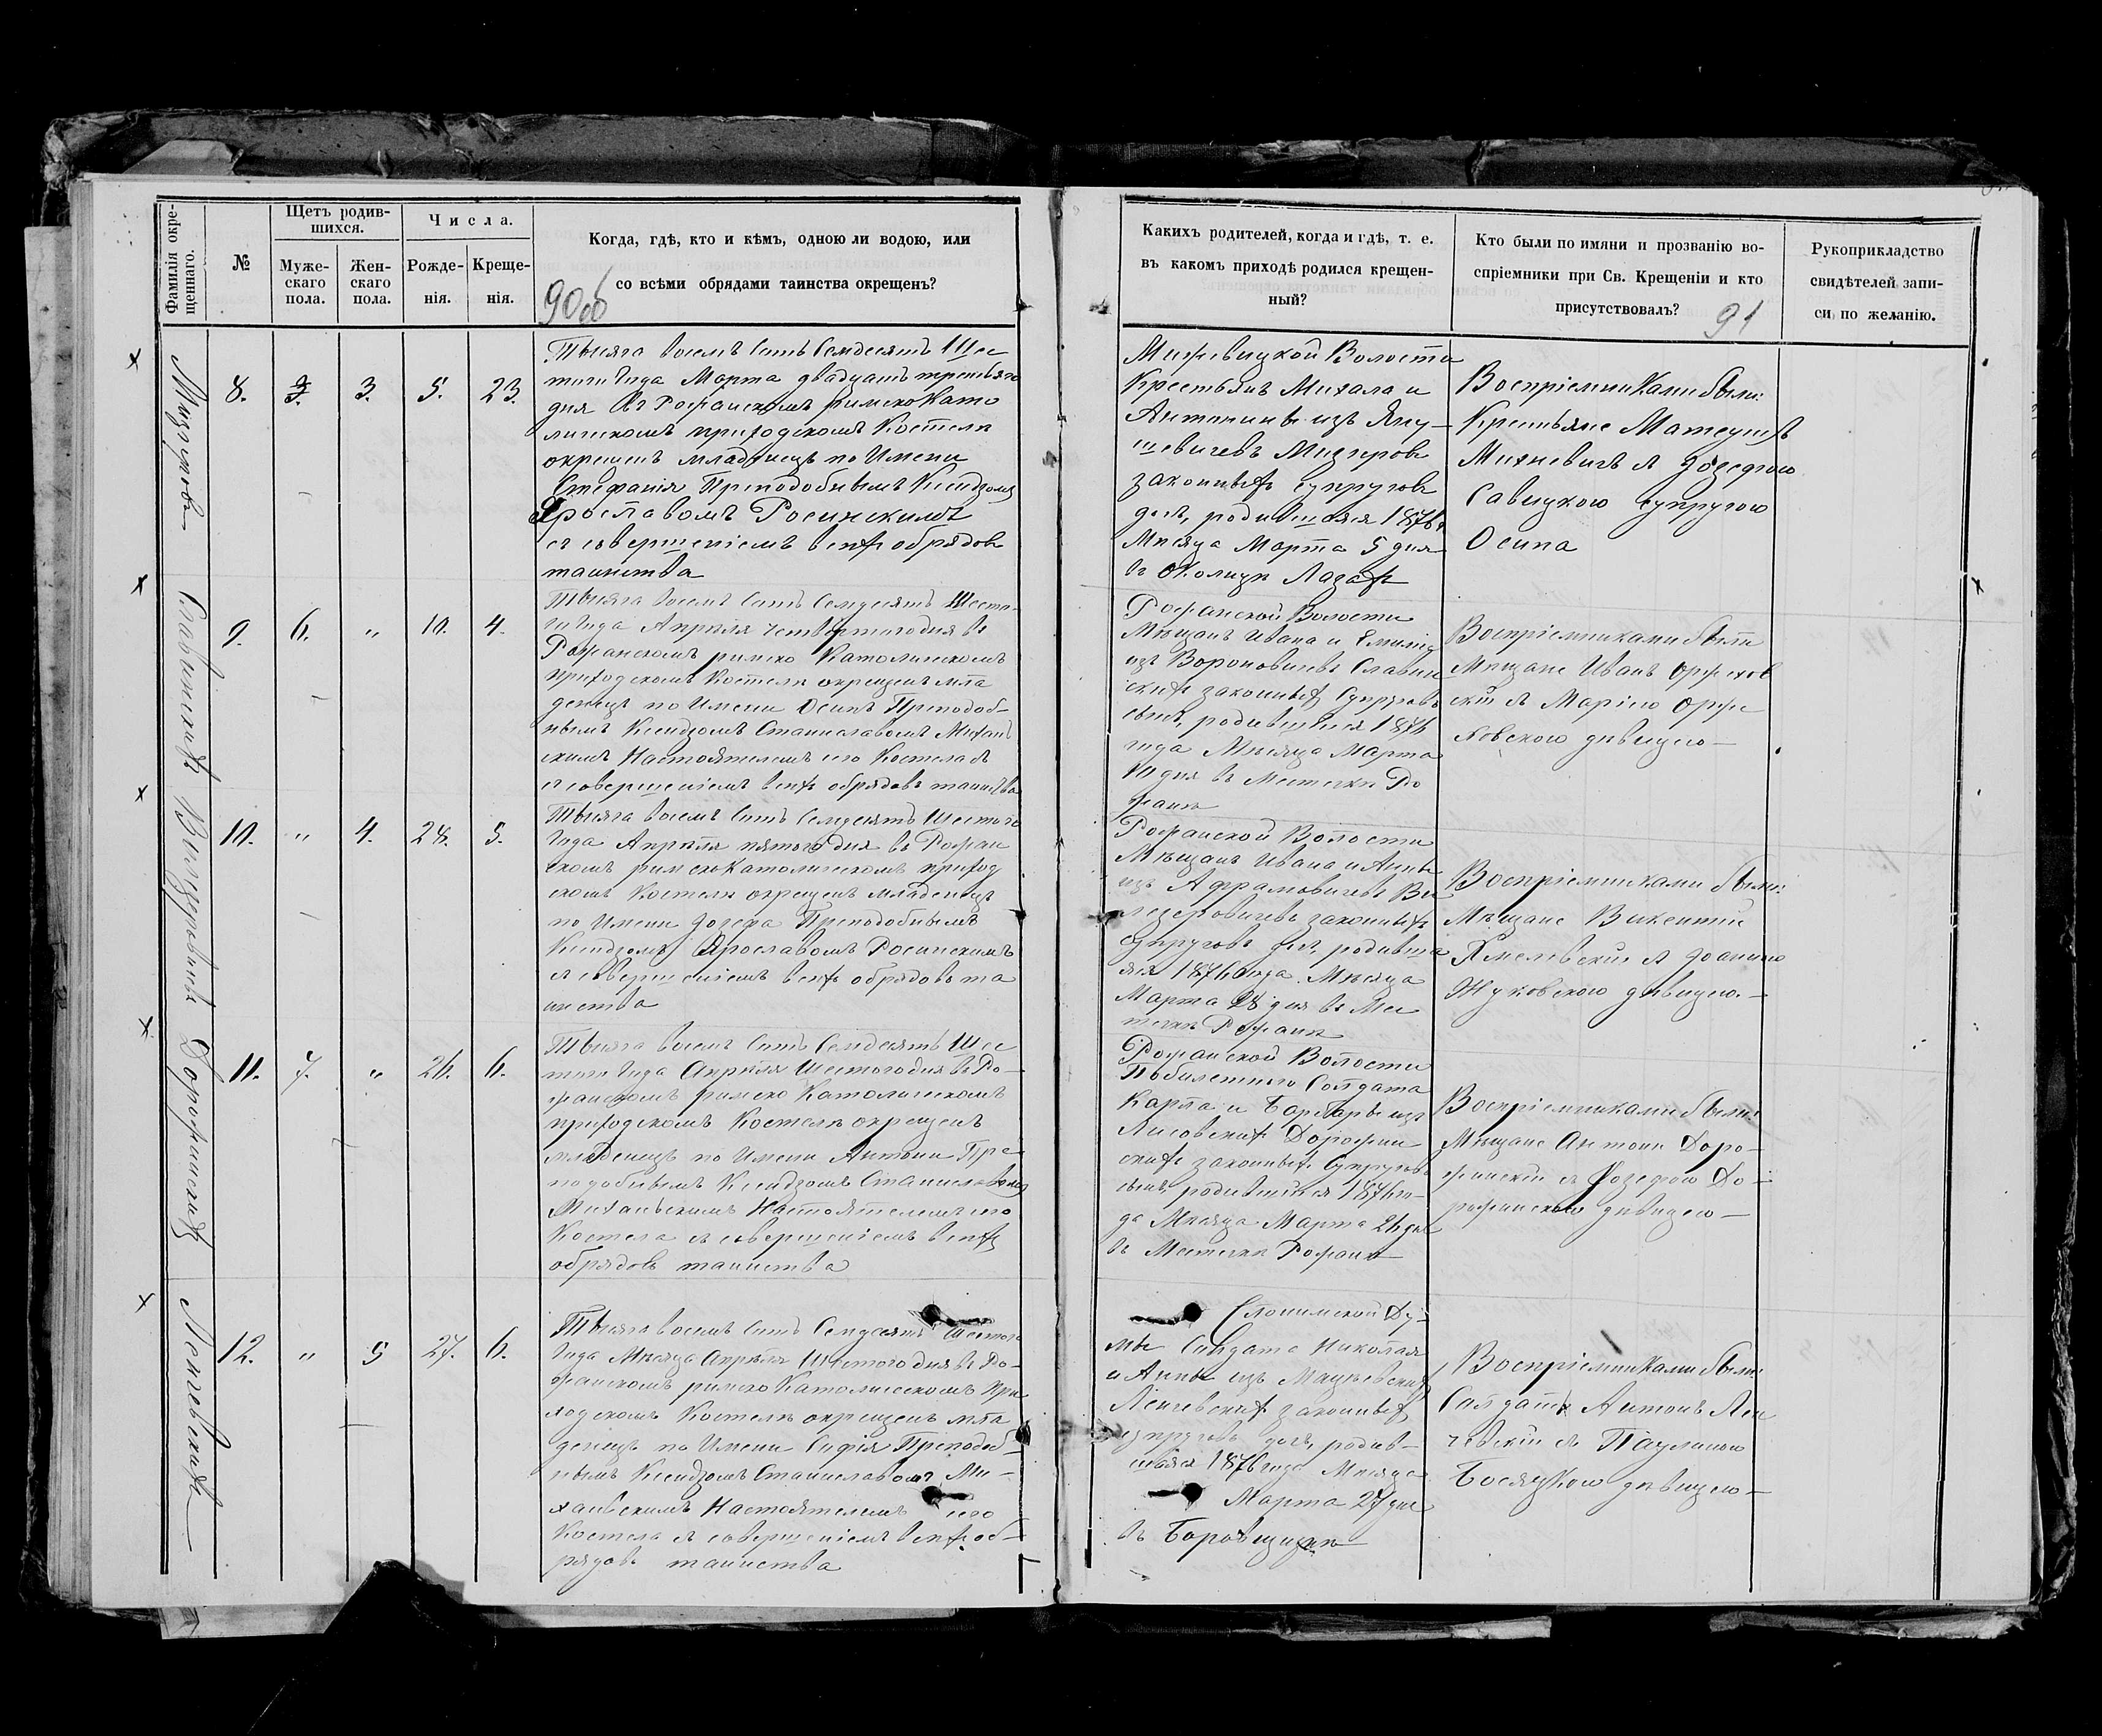 Фамилія окре-
щеннаго.
№
Щетъ родив-
шихся.
Муже-
скаго
пола.
Жен-
скаго
пола.
Числа.
Рожде-
нія.
Креще-
нія.
Когда, гдѣ, кто и кѣмъ, одною ли водою, или
со всѣми обрядами таинства окрещенъ?
90об
Какихъ родителей, когда и гдѣ, т. е.
въ какомъ приходѣ родился крещен-
ный?
Кто были по имяни и прозванію во-
спріемники при Св. Крещеніи и кто
присутствовалъ?
91
Рукоприкладство
свидѣтелей запи-
си, по желанію.
8. 3. 5. 23.
Тысяга восемъ сотъ семдесятъ Шес
того Года Марта двадцатъ третьяго
дня въ Рожанскомъ римско Като
лическомъ приходскомъ Костелѣ
окрещенъ младенецъ по Имени
Стефанія Преподобнымъ Ксендзомъ
Ярославомъ Росинскимъ
съ совершеніемъ всѣхъ обрядовъ
таинства
Волости
Крестьянъ Михала и
Антонины изъ Яну-
шевичевъ
законныхъ супруговъ
дочь, родившаяся 1876
Мѣсяца Марта 5 дня
въ Околицѣ
Воспріемниками были:
Крестьяне Матеушъ
Михневичъ съ Юзефою
Савицкою супругою
Осипа
Славинскихъ
9. 6. " 10. 4.
Тысяга восемъ сотъ семдесятъ Шесто-
го Года Апрѣля четвертого дня въ
Рожанскомъ римско Католическомъ
приходскомъ Костелѣ окрещенъ мла
денецъ по Имени Осипъ Преподоб-
нымъ Ксендзомъ Станиславомъ Михаль
скимъ Настоятелемъ сего Костела
съ совершеніемъ всѣхъ обрядовъ таинства
Рожанской Волости
Мѣщанъ Ивана и Емиліи
изъ Вороновичевъ Славин
скихъ законныхъ Супруговъ
сынъ, родившійся 1876
года Мѣсяца Марта
10 дня въ Местечкѣ Ро
жанѣ
Воспріемниками были
Мѣщане Иванъ Оржехов
скій съ Маріею Орже
ховскою дѣвицею —
10. " 4. 28. 5.
Тысяга восемъ сотъ семдесятъ Шестого
Года Апрѣля пятого дня въ Рожан
скомъ римскоКатолическомъ приход
скомъ Костелѣ окрещенъ младенецъ
по Имени Юзефа Преподобнымъ
Ксендзомъ Ярославомъ Росинскимъ
съ совершеніемъ всѣхъ обрядовъ та
инства
Рожанской Волости
Мѣщанъ Ивана и Анны
изъ
законныхъ
супруговъ дочь, родивша
яся 1876 года Мѣсяца
Марта 28 дня въ Мес
течкѣ Рожанѣ
Воспріемниками были:
Мѣщане Викентій
Хмелевскій съ Іоанною
Жуковскою дѣвицею. —
Дорожинскихъ
11. 7. " 26. 6.
Тысяга восемъ сотъ семдесятъ Шес
того Года Апрѣля Шестого дня въ Ро-
жанскомъ римско Католическомъ
приходскомъ Костелѣ окрещенъ
младенецъ по Имени Антонъ Пре-
подобнымъ Ксендзомъ Станиславомъ
Михальскимъ Настоятелемъ сего
Костела съ совершеніемъ всѣхъ
обрядовъ таинства
Рожанской Волости
Солдата
Карла и Барбары изъ
Лисовскихъ Дорожин
скихъ законныхъ Супруговъ
сынъ, родившійся 1876 го-
да Мѣсяца Марта 26 дня
въ Местечкѣ Рожанѣ
Воспріемниками были:
Мѣщане Антонъ Доро-
жинскій съ Юзефою До-
рожинскою дѣвицею —
Ленчевскихъ
12. " 5 27. 6.
Тысяга восемъ сотъ семдесятъ Шестого
Года Мѣсяца Апрѣля Шестого дня въ Ро-
жанскомъ римско Католическомъ при
ходскомъ Костелѣ окрещенъ мла
денецъ по Имени Софія Преподоб-
нымъ Ксендзомъ Станиславомъ Ми-
хальскимъ Настоятелемъ сего
Костела съ совершеніемъ всѣхъ об-
рядовъ таинства
Слонимской Ду-
мы Солдата Николая
и Анны изъ Мацкевскихъ
Ленчевскихъ законныхъ
супруговъ дочь, родив-
шаяся 1876 года Мѣсяца
Марта 27 дня
въ
Воспріемниками были:
Солдатъ Антонъ Лен
чевскій съ Паулиною
дѣвицею —